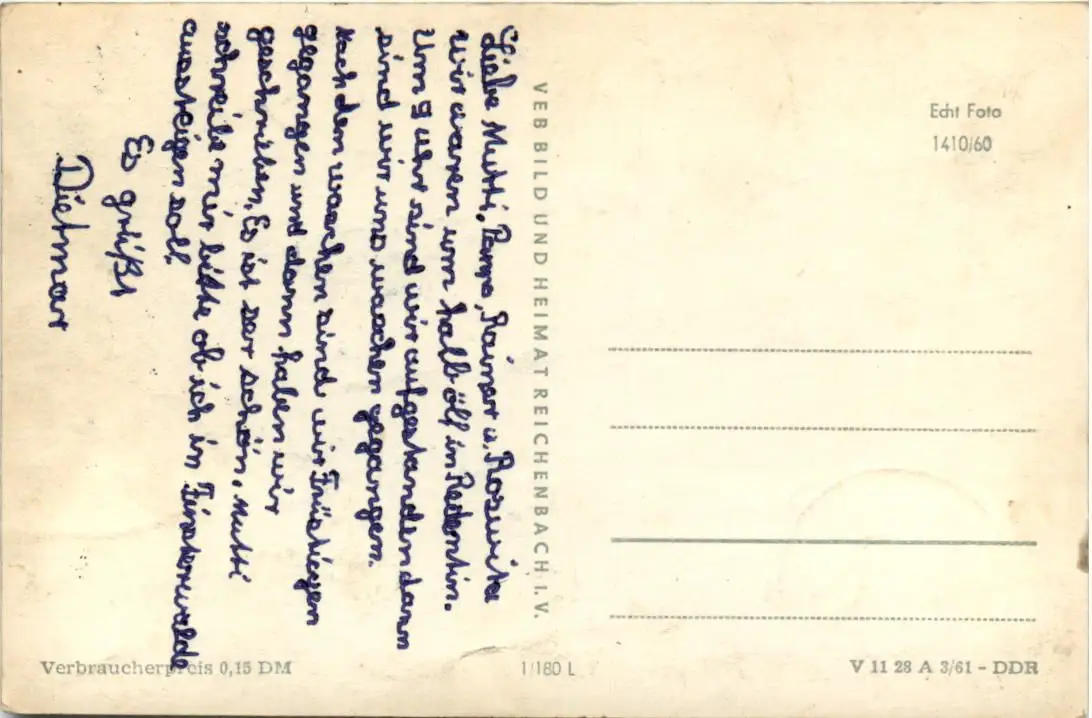 Liebe Mutti, Pampa, Rainer u. Roswita
wir waren um halb ölf in Redentin.
Um 9 uhr sind wir aufgestanden dann
sind wir uns waschen gegangen.
Nach dem waschen sind wir
gegangen und dann haben wir
geschrieben. Es ist ser schön. Mutti
schreibe mir bitte ob ich in Finsterwalde
aussteigen soll.
Es grüßt
Dietmar
VEB BILD UND HEIMAT REICHENBACH I. V.
Echt Foto
1410/60
Verbraucherpreis 0,15 DM
1/180 L
V 11 28 A 3/61 - DDR